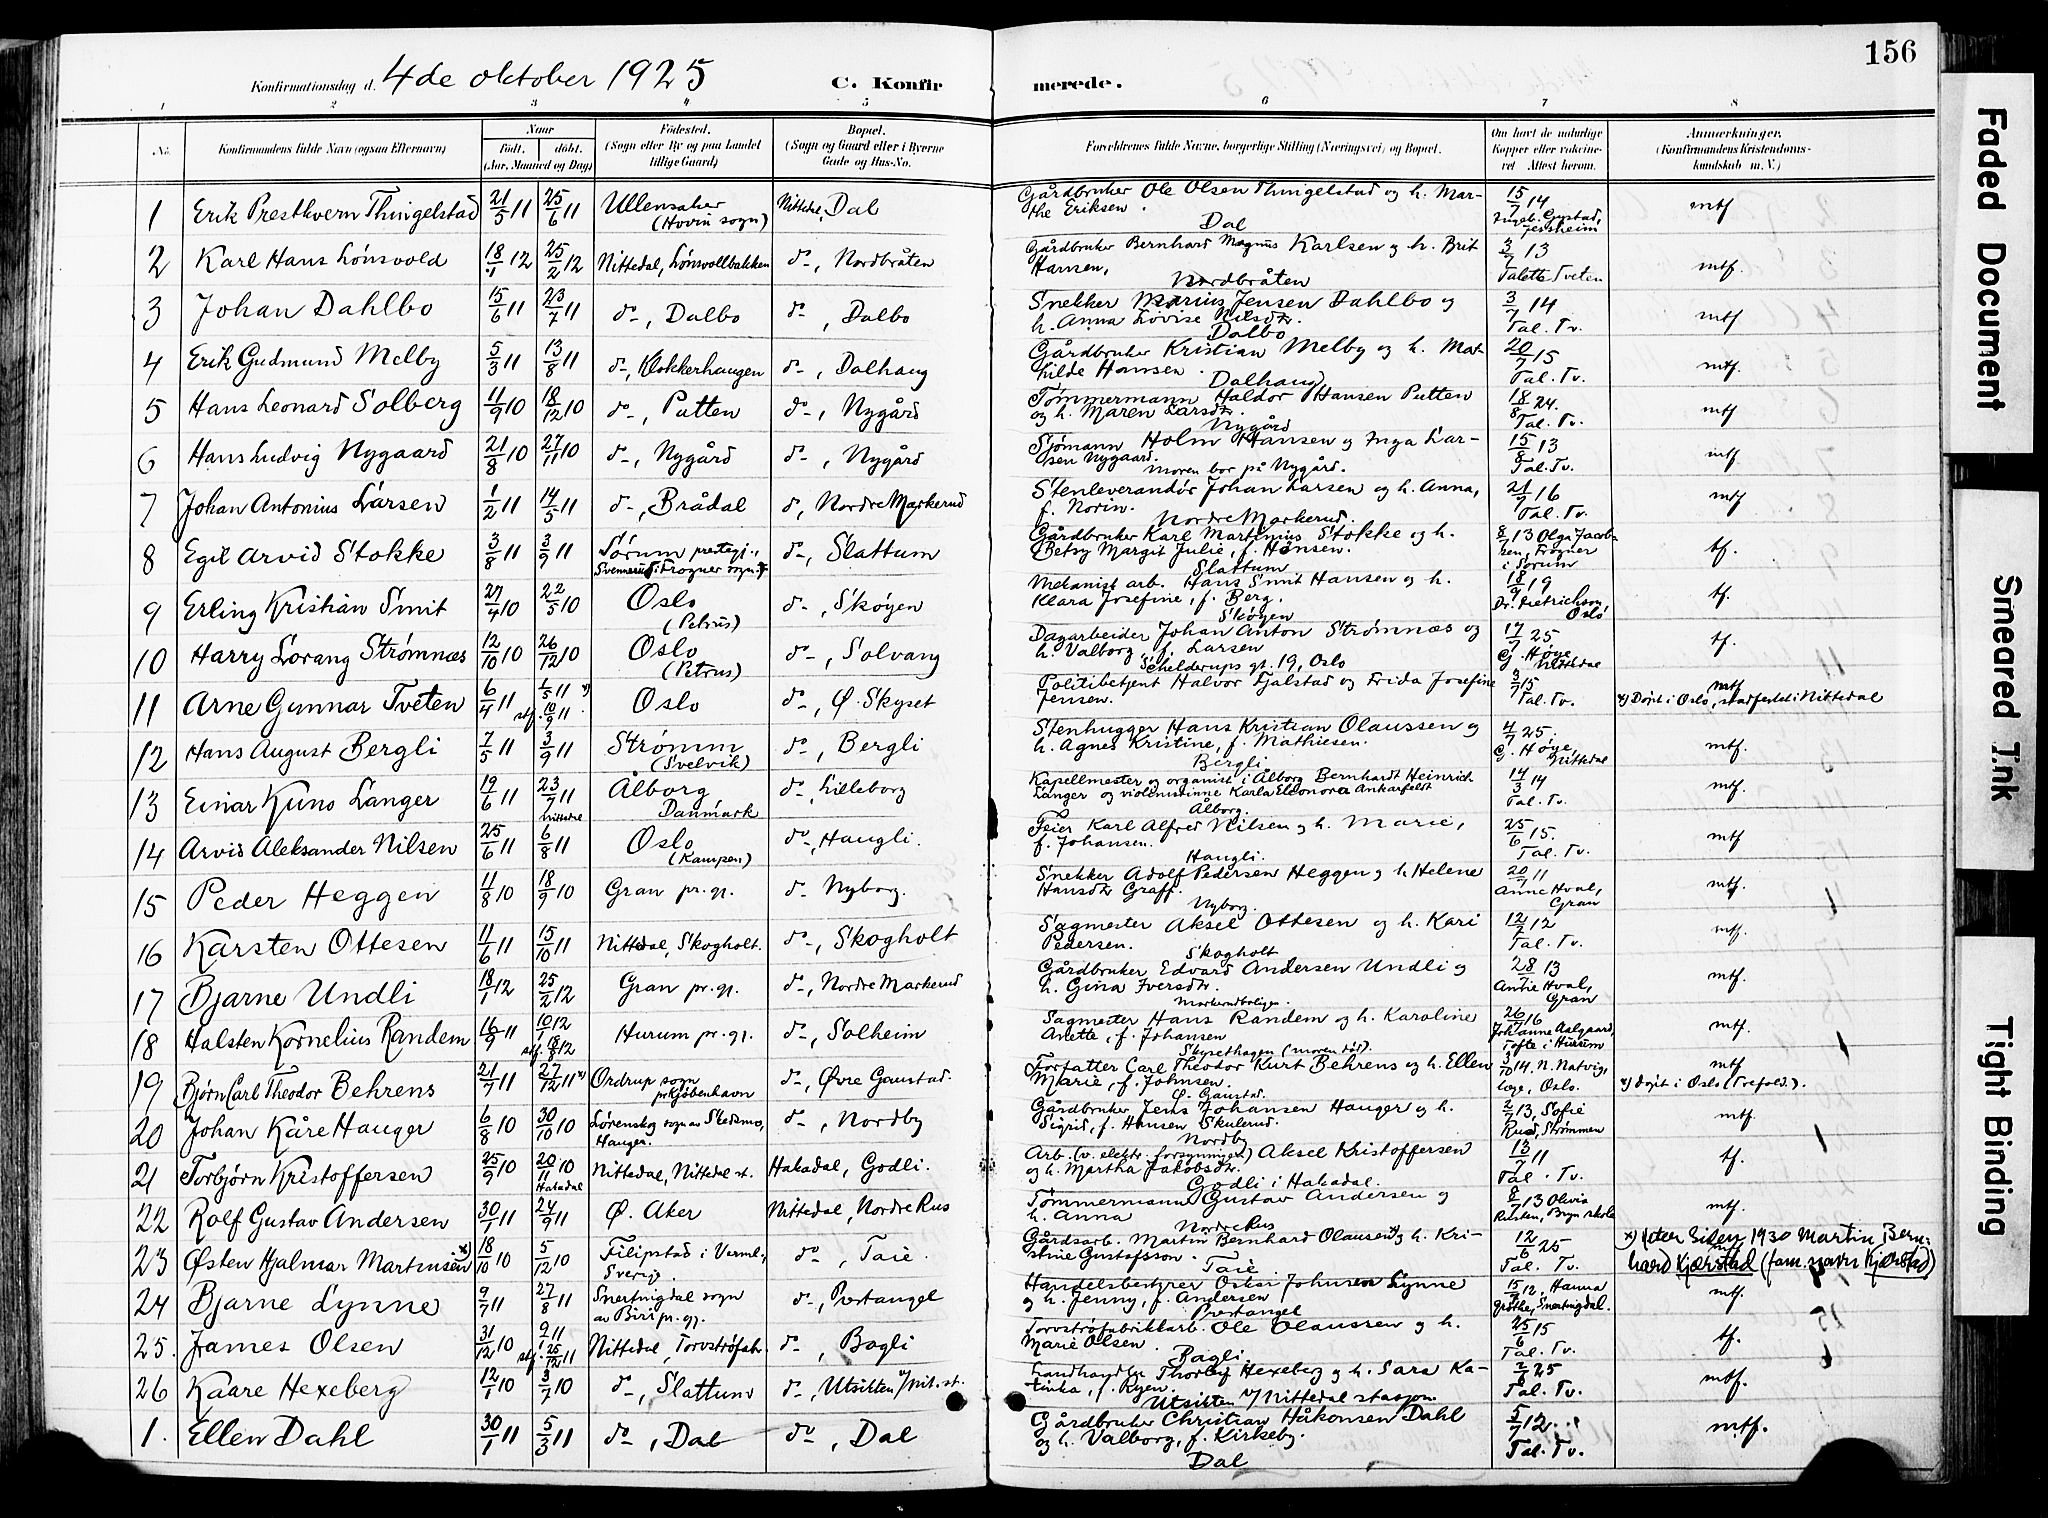 156
Konfirmationsdag d. 4de oktober 1925 C. Konfirmerede.
1 2 3 4 5 6 7 8
No. Konfirmandens fulde Navn (ogsaa Efternavn) Naar Födt. döbt. (Aar, Maaned og Dag) Födested. (Sogn eller By og paa Landet tillige Gaard) Bopæl. (Sogn og Gaard eller i Byerne Gade og Hus-No. Forældrenes fulde Navne, borgerlige Stilling (Næringsvei) og Bopæl. Om havt de naturlige Kopper eller vaccineret Attest herom. Anmærkninger. (Konfirmandens Kristendomskundskab m. V.)
1 Erik Prestkvern Thingelstad 21/5 11 25/6 11 Ullensaker (Hovin sogn) Nittedal, Dal Gårdbruker Ole Olsen Thingelstad og h. Marthe Eriksen. Dal 15/7 14 Ingeb. Gystad, Jessheim mtf
2 Karl Hans Lønsvold 18/1 12 25/2 12 Nittedal, Lønsvollbakken do, Nordbråten Gårdbruker Bernhard Magnus Karlsen og h. Brit Hansen, Nordbråten 3/7 13 Talette Tveten mtf.
3 Johan Dahlbo 15/6 11 23/7 11 do, Dalbo do, Dalbo Snekker Marius Jensen Dahlbo og h. Anna Lovise Nilsdtr. Dalbo 3/7 14 Tal. Tv. mtf
4 Erik Gudmund Melby 5/3 11 13/8 11 do, Klokkerhaugen do, Dalhaug Gårdbruker Kristian Melby og h. Mathilde Hansen. Dalhaug 20/7 15 Tal. Tv. mtf.
5 Hans Leonard Solberg 11/9 10 18/12 10 do, Putten do, Nygård Tømmermann Haldor Hansen Putten og h. Maren Larsdtr. Nygård 18/8 24. Tal. Tv. mtf
6 Hans Ludvig Nygaard 21/8 10 27/11 10 do, Nygård do, Nygård Sjømann Holm Hansen og Inga Larsen Nygaard. moren bor på Nygård. 15/8 13 Tal. Tv. mtf.
7 Johan Antonius Larsen 1/2 11 14/5 11 do, Brådal do, Nordre Markerud Stenleverandør Johan Larsen og h. Anna, f. Norin. Nordre Markerud. 21/7 16 Tal. Tv. mtf
8 Egil Arvid Stokke 3/8 11 3/9 11 Sørum prestegj., Frogner sogn do, Slattum Gårdbruker Karl Martinius Stokke og h. Betsy Margit Julie, f. Hansen. Slattum 8/7 13 Olga Jacobsen, Frogner i Sørum tf.
9 Erling Kristian Smit 27/4 10 22/5 10 Oslo (Petrus) do, Skøyen Mekanisk arb. Hans Smit Hansen og h. Klara Josefine, f. Berg. Skøyen 18/9 19 Dr. Dietrichson, Oslo tf.
10 Harry Lorang Strømnæs 12/10 10 26/12 10 Oslo (Petrus) do, Solvang Dagarbeider Johan Anton Strømnæs og h. Valborg, f. Larsen Schelderups gt. 19, Oslo 17/7 25 G. Høye, Nittedal tf.
11 Arne Gunnar Tveten 6/4 11 1/5 11 x) stf. 10/9 11 Oslo do, Ø. Skyset Politibetjent Halvor Fjalstad og Frida Josefine Jensen. 3/7 15 Tal. Tv. mtf x) Døpt i Oslo, stadfestet i Nittedal
12 Hans August Bergli 7/5 11 3/9 11 Strømm (Svelvik) do, Bergli Stenhugger Hans Kristian Olaussen og h. Agnes Kristine, f. Mathiesen. Bergli 4/7 25. G. Høye, Nittedal mtf.
13 Einar Kuno Langer 19/6 11 23/7 11 Nittedal Ålborg Danmark do, Lilleborg Kapellmester og organist i Ålborg Bernhardt Heinrich Langer og violinistinne Karla Eleonora Ankarfeldt Ålborg 14/3 14 Tal. Tv. mtf.
14 Arvid Aleksander Nilsen 25/6 11 6/8 11 Oslo (Kampen) do, Haugli. Feier Karl Alfred Nilsen og h. Marie, f. Johansen. Haugli. 25/6 15. Tal. Tv. mtf
15 Peder Heggen 11/8 10 18/9 10 Gran pr.gj. do, Nyborg. Snekker Adolf Pedersen Heggen og h Helene Hansdtr Graff. Nyborg. 20/7 11 Anne Hval, Gran mtf.
16 Karsten Ottesen 11/6 11 15/10 11 Nittedal, Skogholt. do, Skogholt Sagmester Aksel Ottesen og h. Kari Pedersen. Skogholt 12/7 12 Tal. Tv. mtf.
17 Bjarne Undli 18/1 12 25/2 12 Gran pr.gj. do, Nordre Markerud Gårdbruker Edvard Andersen Undli og h. Gina Iversdtr. Markerudboligen. 28/7 13 Anne Hval, Gran mtf.
18 Halsten Kornelius Randem 16/9 11 10/1 12 stf. 18/8 12 Hurum pr.gj. do, Solheim Sagmester Hans Randem og h. Karoline Anette, f. Johansen Skysethagen (moren død). 26/7 16 Johanne Aalgaard, Tofte i Hurum mtf.
19 Bjørn Carl Theodor Behrens 21/7 11 27/12 11 x) Ordrup sogn pr Kjøbenhavn do, Øvre Gaustad. Forfatter Carl Theodor Kurt Behrens og h. Ellen Marie, f. Johnsen. Ø. Gaustad. 3/10 14. N. Natvig, læge, Oslo. mtf x) Døpt i Oslo (Trefold.).
20 Johan Kåre Hauger 6/8 10 30/10 10 Lørenskog sogn av Skedsmo, Hauger. do, Nordby Gårdbruker Jens Johansen Hauger og h. Sigrid, f. Hansen Skulerud. Nordby 2/7 13, Sofie Rud, Strømmen mtf.
21 Torbjørn Kristoffersen 25/9 10 20/11 10 Hakadal Nittedal, Nittedal st. Hakadal, Godli. Arb. (v. elektr. forsyningen) Aksel Kristoffersen og h. Martha Jakobsdtr. Godli i Hakadal. 13/7 11 Tal. Tv. tf.
22 Rolf Gustav Andersen 30/1 11 24/9 11 Ø. Aker Nittedal, Nordre Rus Tømmermann Gustav Andersen og h. Anna Nordre Rus 8/7 13 Olivia Rusten, Bryn skole mtf.
23 Østen Hjalmar Martinsen x) 18/10 10 5/12 10 Filipstad i Verml., Sverig. do, Taie. Gårdsarb. Martin Bernhard Olausen x) og h. Kristine Gustafsson. Taie. 12/6 25 Tal. Tv. x) 1930 Martin Bernhard Kjærstad (fam.navn Kjærstad)
24 Bjarne Lynne 9/7 11 27/8 11 Snertingdal sogn av Biri pr.gj. do, Portangel Handelsbestyrer Oskar Johnsen Lynne og h. Jenny, f. Andersen Portangel 15/7 12, Hanna Grøthe, Snertingdal. mtf.
25. James Olsen 31/12 10 9/1 11 stf. 25/12 11 Nittedal, Torvstrøfabr. do, Bagli Torvstrøfabrikkarb. Ole Olaussen og h. Marie Olsen. Bagli. 25/6 15 Tal. Tv. tf.
26 Kaare Hexeberg 12/1 10 3/7 10 do, Slattum do, Utsikten v/ Nit. st. Landhandler Thorleif Hexeberg og h. Sara Katinka, f. Ryen. Utsikten v/ Nittedal stasjon. 2/8 25 Tal. Tv. mtf.
1. Ellen Dahl 30/1 11 5/3 11 do, Dal do, Dal Gårdbruker Christian Håkonsen Dahl og h. Valborg, f. Kirkeby. Dal 5/7 12. Tal. Tv. mtf.
Faded Document
Smeared Ink
Tight Binding